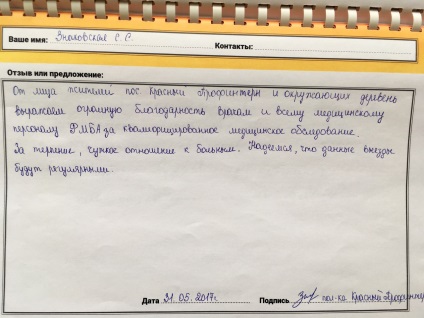 Ваше имя: Зноловская С. С.
Контакты:
Отзыв или предложение:
От лица жителей пос Красный Профинтерн и окружающих деревень
выражаем огромную благодарность врачам и всему медицинскому
персоналу ФМБА за квалифицированное медицинское обследование.
За терпение, чуткое отношение к больным. Надеемся, что данные выезды
будут регулярными.
Дата 31.05.2017г. Подпись пол-ка Красный Профинтерн